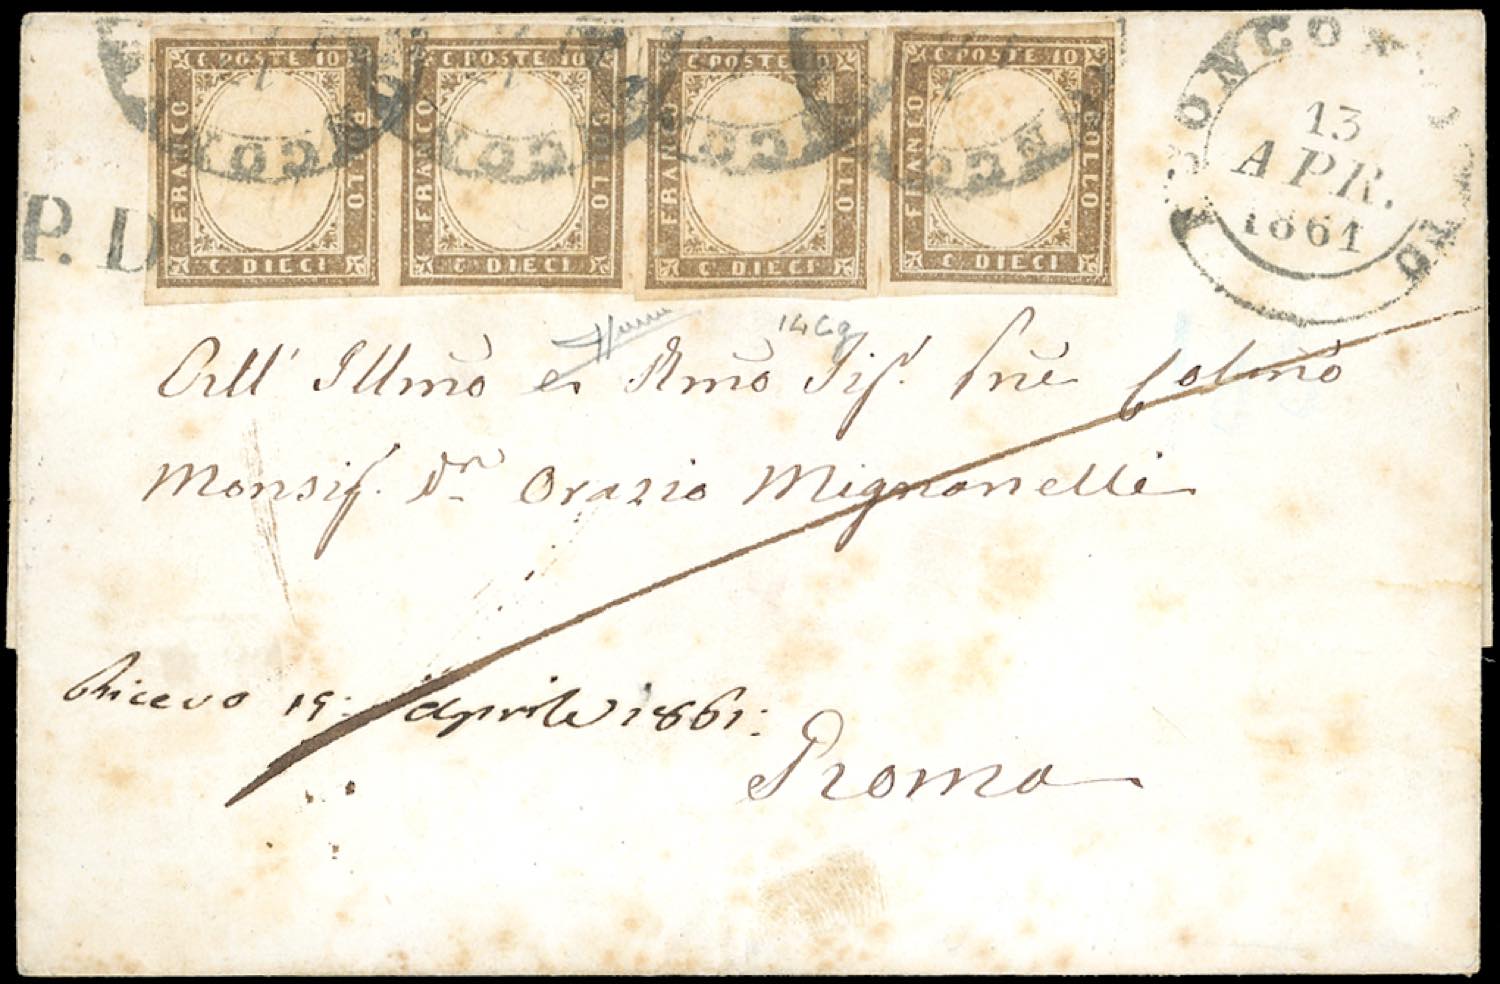 C POSTE 10 C POSTE 10 C POSTE C POSTE 10
FRANCO BOLLO FRANCO BOLLO FRANCO BOLLO FRANCO BOLLO
C. DIECI C. DIECI C. DIECI C. DIECI
P. D
13
APR.
1861
14Cg
All' Illmo e Rmo Sig. Pne Colmo
Monsig. Dn Orazio Mignanelli
Ricevo 19: aprile 1861:
Roma